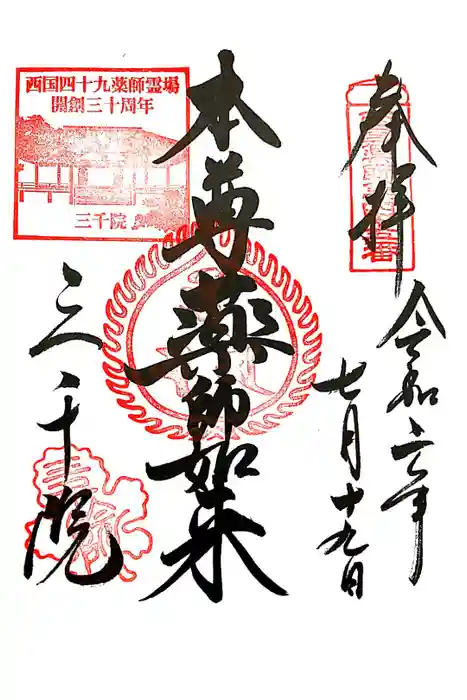 奉拝
令和二年
七月十九日
本尊薬師如来
西国四十九薬師霊場
開創三十周年
三千院
三千院